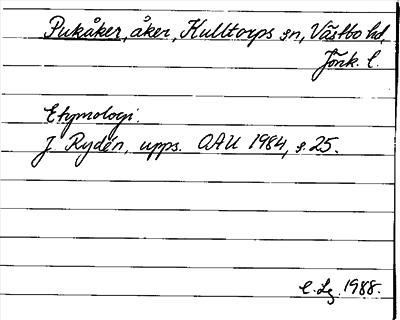 Pukåker, åker, Kulltorps sn, Västbo hd,
Jönk. l.
Etymologi.
J. Rydén, upps. OAU 1984, s. 25.
E. Lg. 1988.